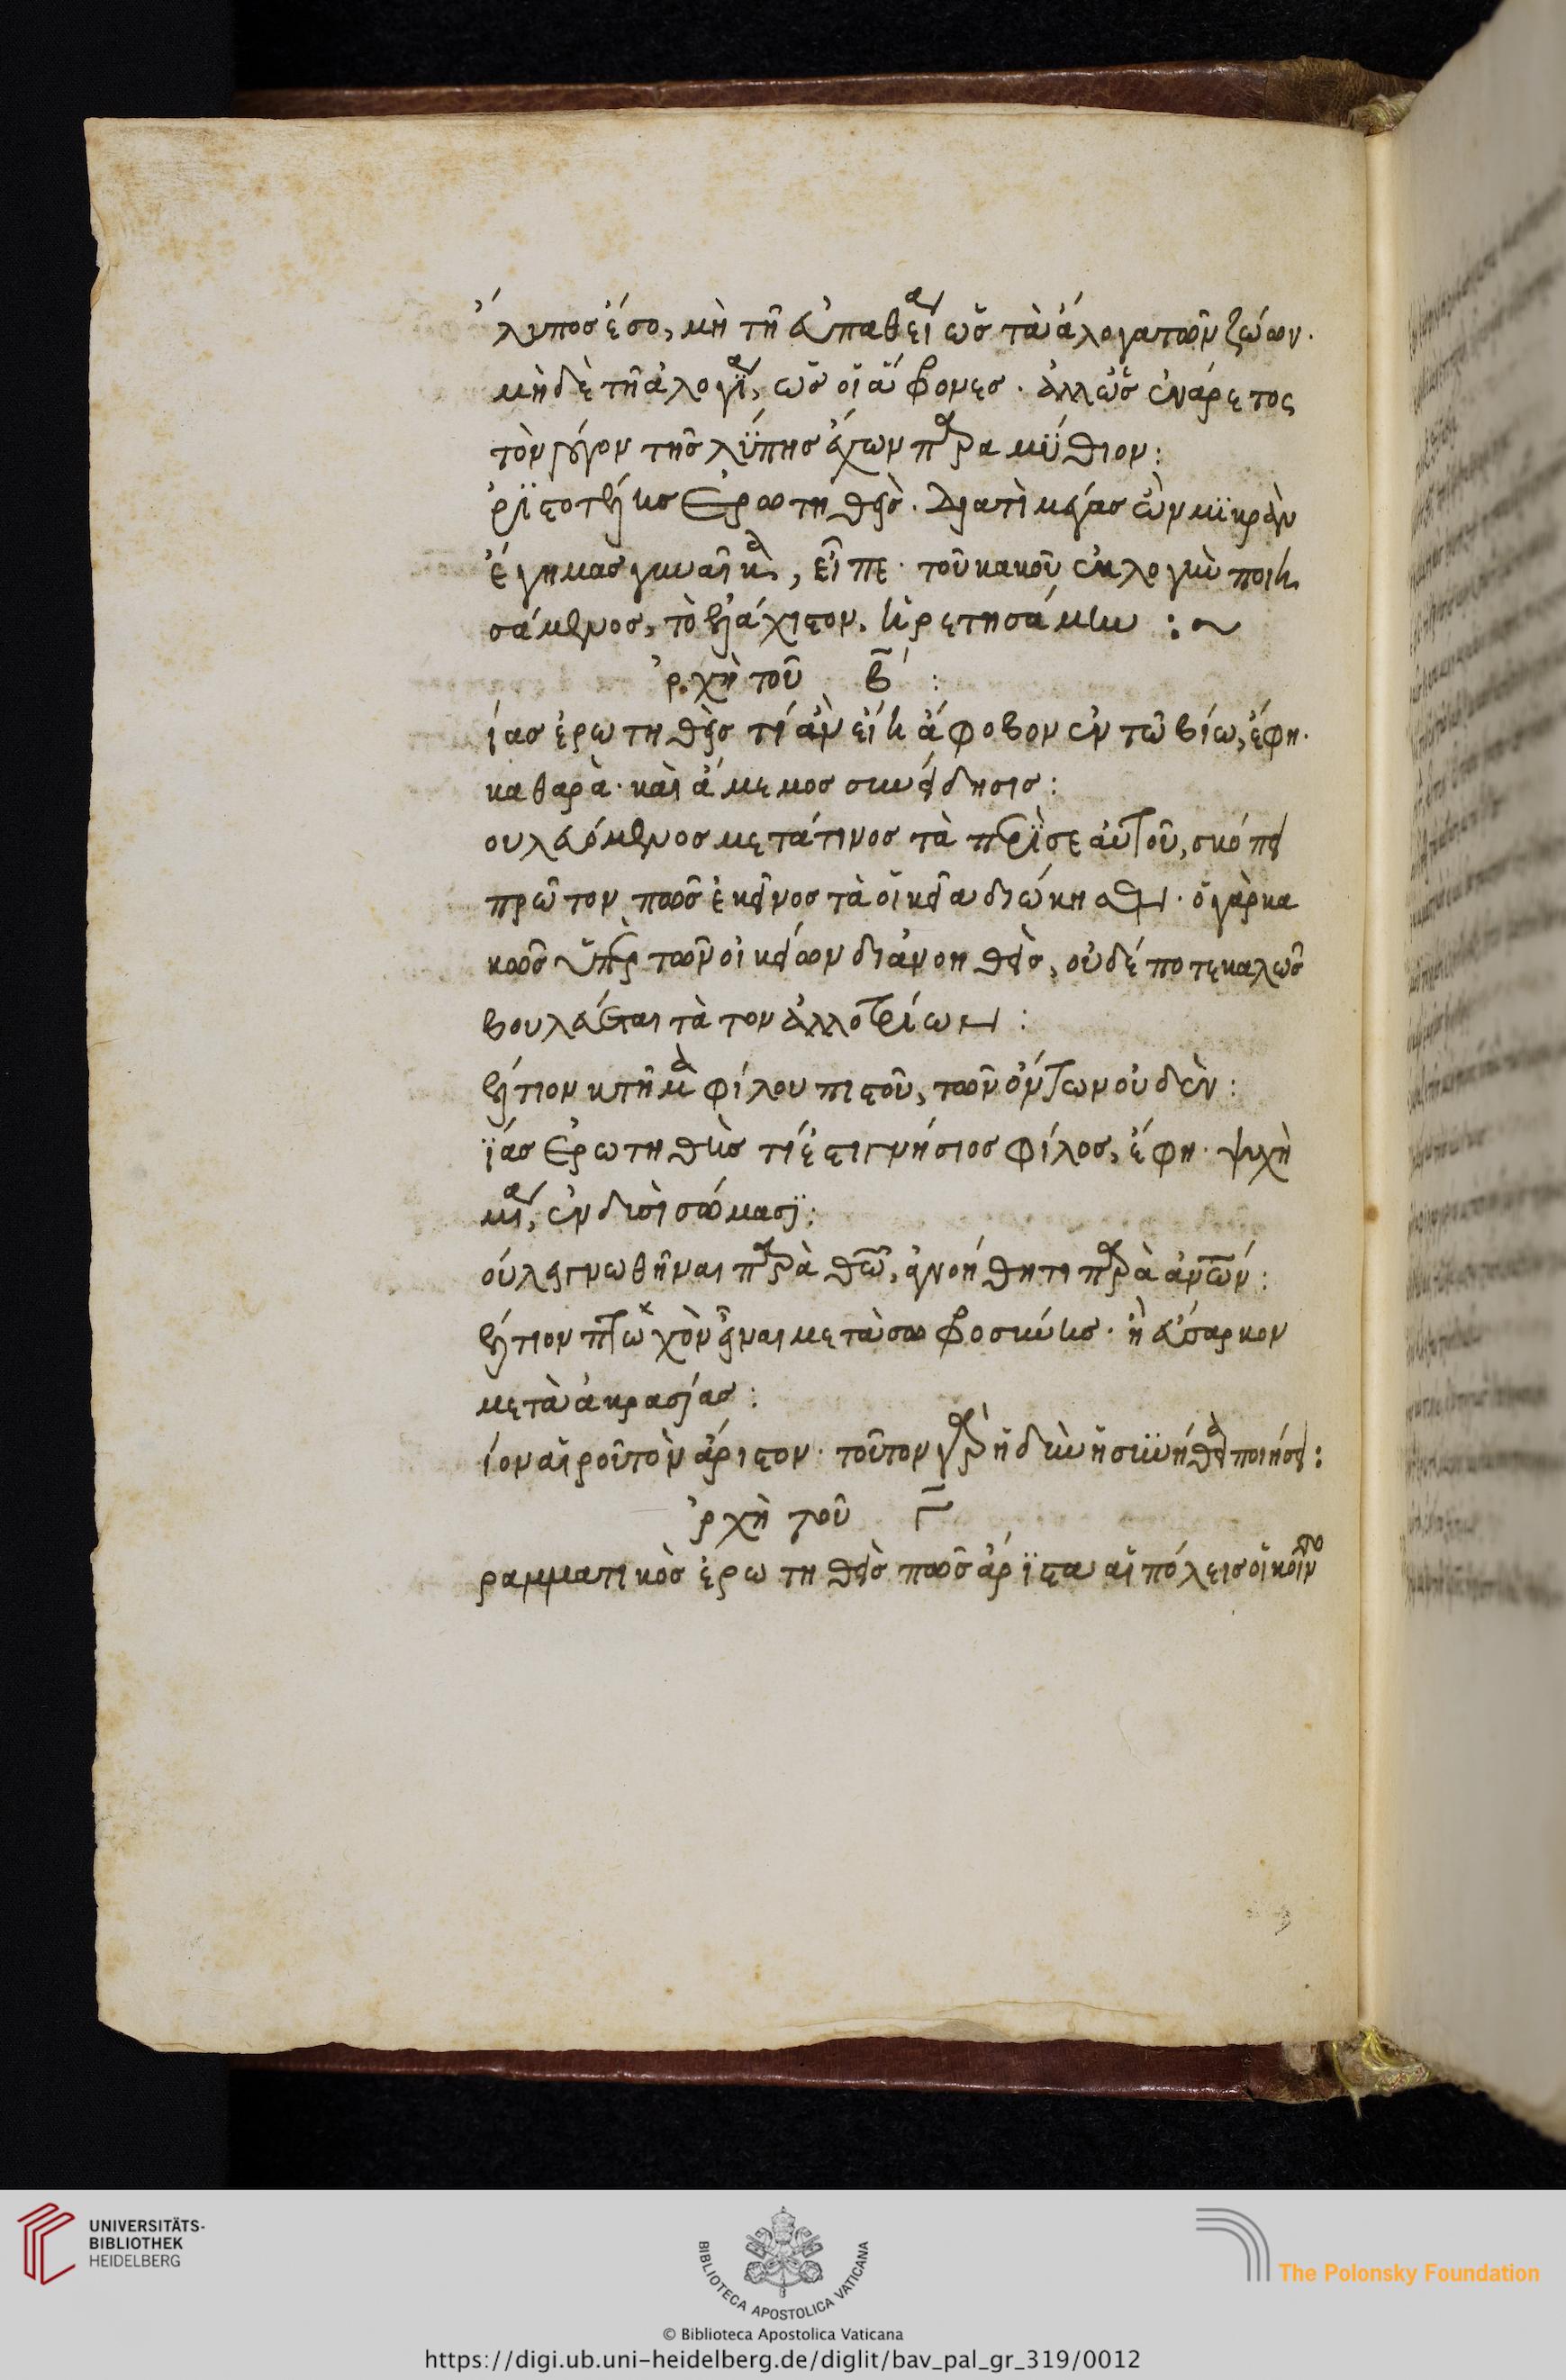 ΄λυπος ἔσο, μὴ τῆ ἀπαθεία ὡς τὰ ἄλογα τῶν ζώων.
μὴ δὲ τῆ ἀλογΐα, ὡς οἱ ἄφρονες. ἀλλ' ὡς ἐνάρετος
τὸν λόγον τῆς λύπης ἔχων παραμύθιον:
ριστοτέλης ἐρωτηθεὶς. διατὶ μέγας ὢν μικρὰν
ἔγημας γυναῖκα, εἶπε. τοῦ κακοῦ ἐκλογὴν ποιη
σάμενος, τὸ ἐλάχιστον. ἡρετησάμην :~
ρχὴ τοῦ β :
ίας ἐρωτηθεὶς τί ἂν εἴη ἄφοβον ἐν τῶ βίω, ἔφη.
καθαρὰ. καὶ ἄμεμος συνείδησις:
ουλευόμενος μετά τινος τὰ περὶ σεαυτοῦ, σκόπει
πρῶτον πῶς ἐκεῖνος τὰ οἰκεῖα διώκησεν. ὁ γὰρ κα
κῶς ὑπὲρ τῶν οἰκείων διανοηθεὶς, οὐδέποτε καλῶς
βουλεύεται τὰ τον ἀλλοτρίων:
έλτιον κτῆμα φίλου πιστοῦ, τῶν ὄντων οὐδὲν:
ίας ἐρωτηθεὶς τί ἐστι γνήσιος φίλος, ἔφη. ψυχὴ
μία, ἐν δυσὶ σώμασϊ:
ούλει γνωθῆναι παρὰ θεῶ, ἀγνοήθητι παρὰ ἀνων:
έλτιον πτωχὸν εἶναι μετὰ σωφροσύνης. ἢ εὔσαρκον
μετὰ ἀκρασίας:
ίον αἱροῦ τὸν ἄριστον. τοῦτον γὰρ ἡδὺν ἡ συνήθεια ποιήσει:
ρχὴ τοῦ Γ
ραμματικὸς ἐρωτηθεὶς πῶς ἄριστα αἱ πόλεις οἰκοῖντο
UNIVERSITÄTS-
BIBLIOTHEK
HEIDELBERG
BIBLIOTECA APOSTOLICA VATICANA
The Polonsky Foundation
© Biblioteca Apostolica Vaticana
https://digi.ub.uni-heidelberg.de/diglit/bav_pal_gr_319/0012